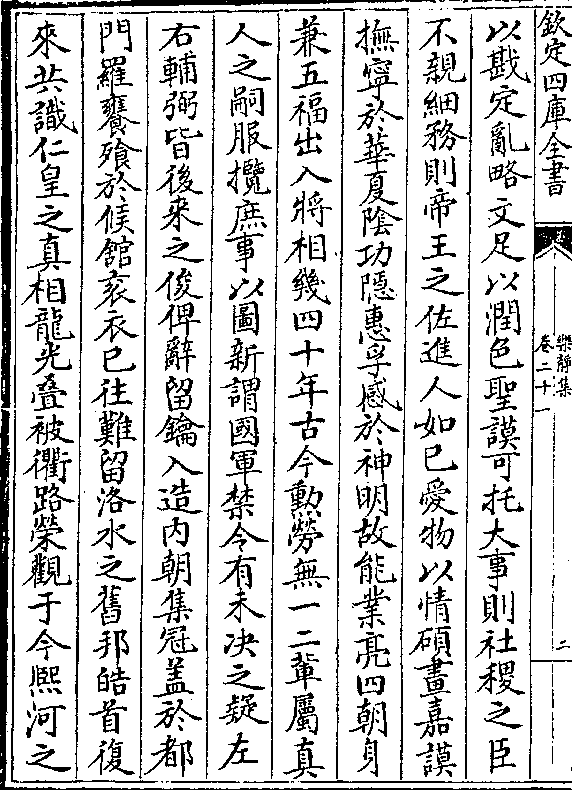 欽定四庫全書
樂靜集
卷二十一
二
以戡定亂略文足以潤色聖謨可托大事則社稷之臣
不親細務則帝王之佐進人如已愛物以情碩畫嘉謨
撫寧於華夏陰功隱惠孚感於神明故能業亮四朝身
兼五福出入將相幾四十年古今勲勞無一二輩屬真
人之嗣服攬庶事以圖新謂國軍禁令有未决之疑左
右輔弼皆後來之俊俾辭留鑰入造内朝集冠盖於都
門羅饔飱於候館衮衣已往難留洛水之舊邦皓首復
來共識仁皇之真相龍光叠被衢路榮觀于今熙河之